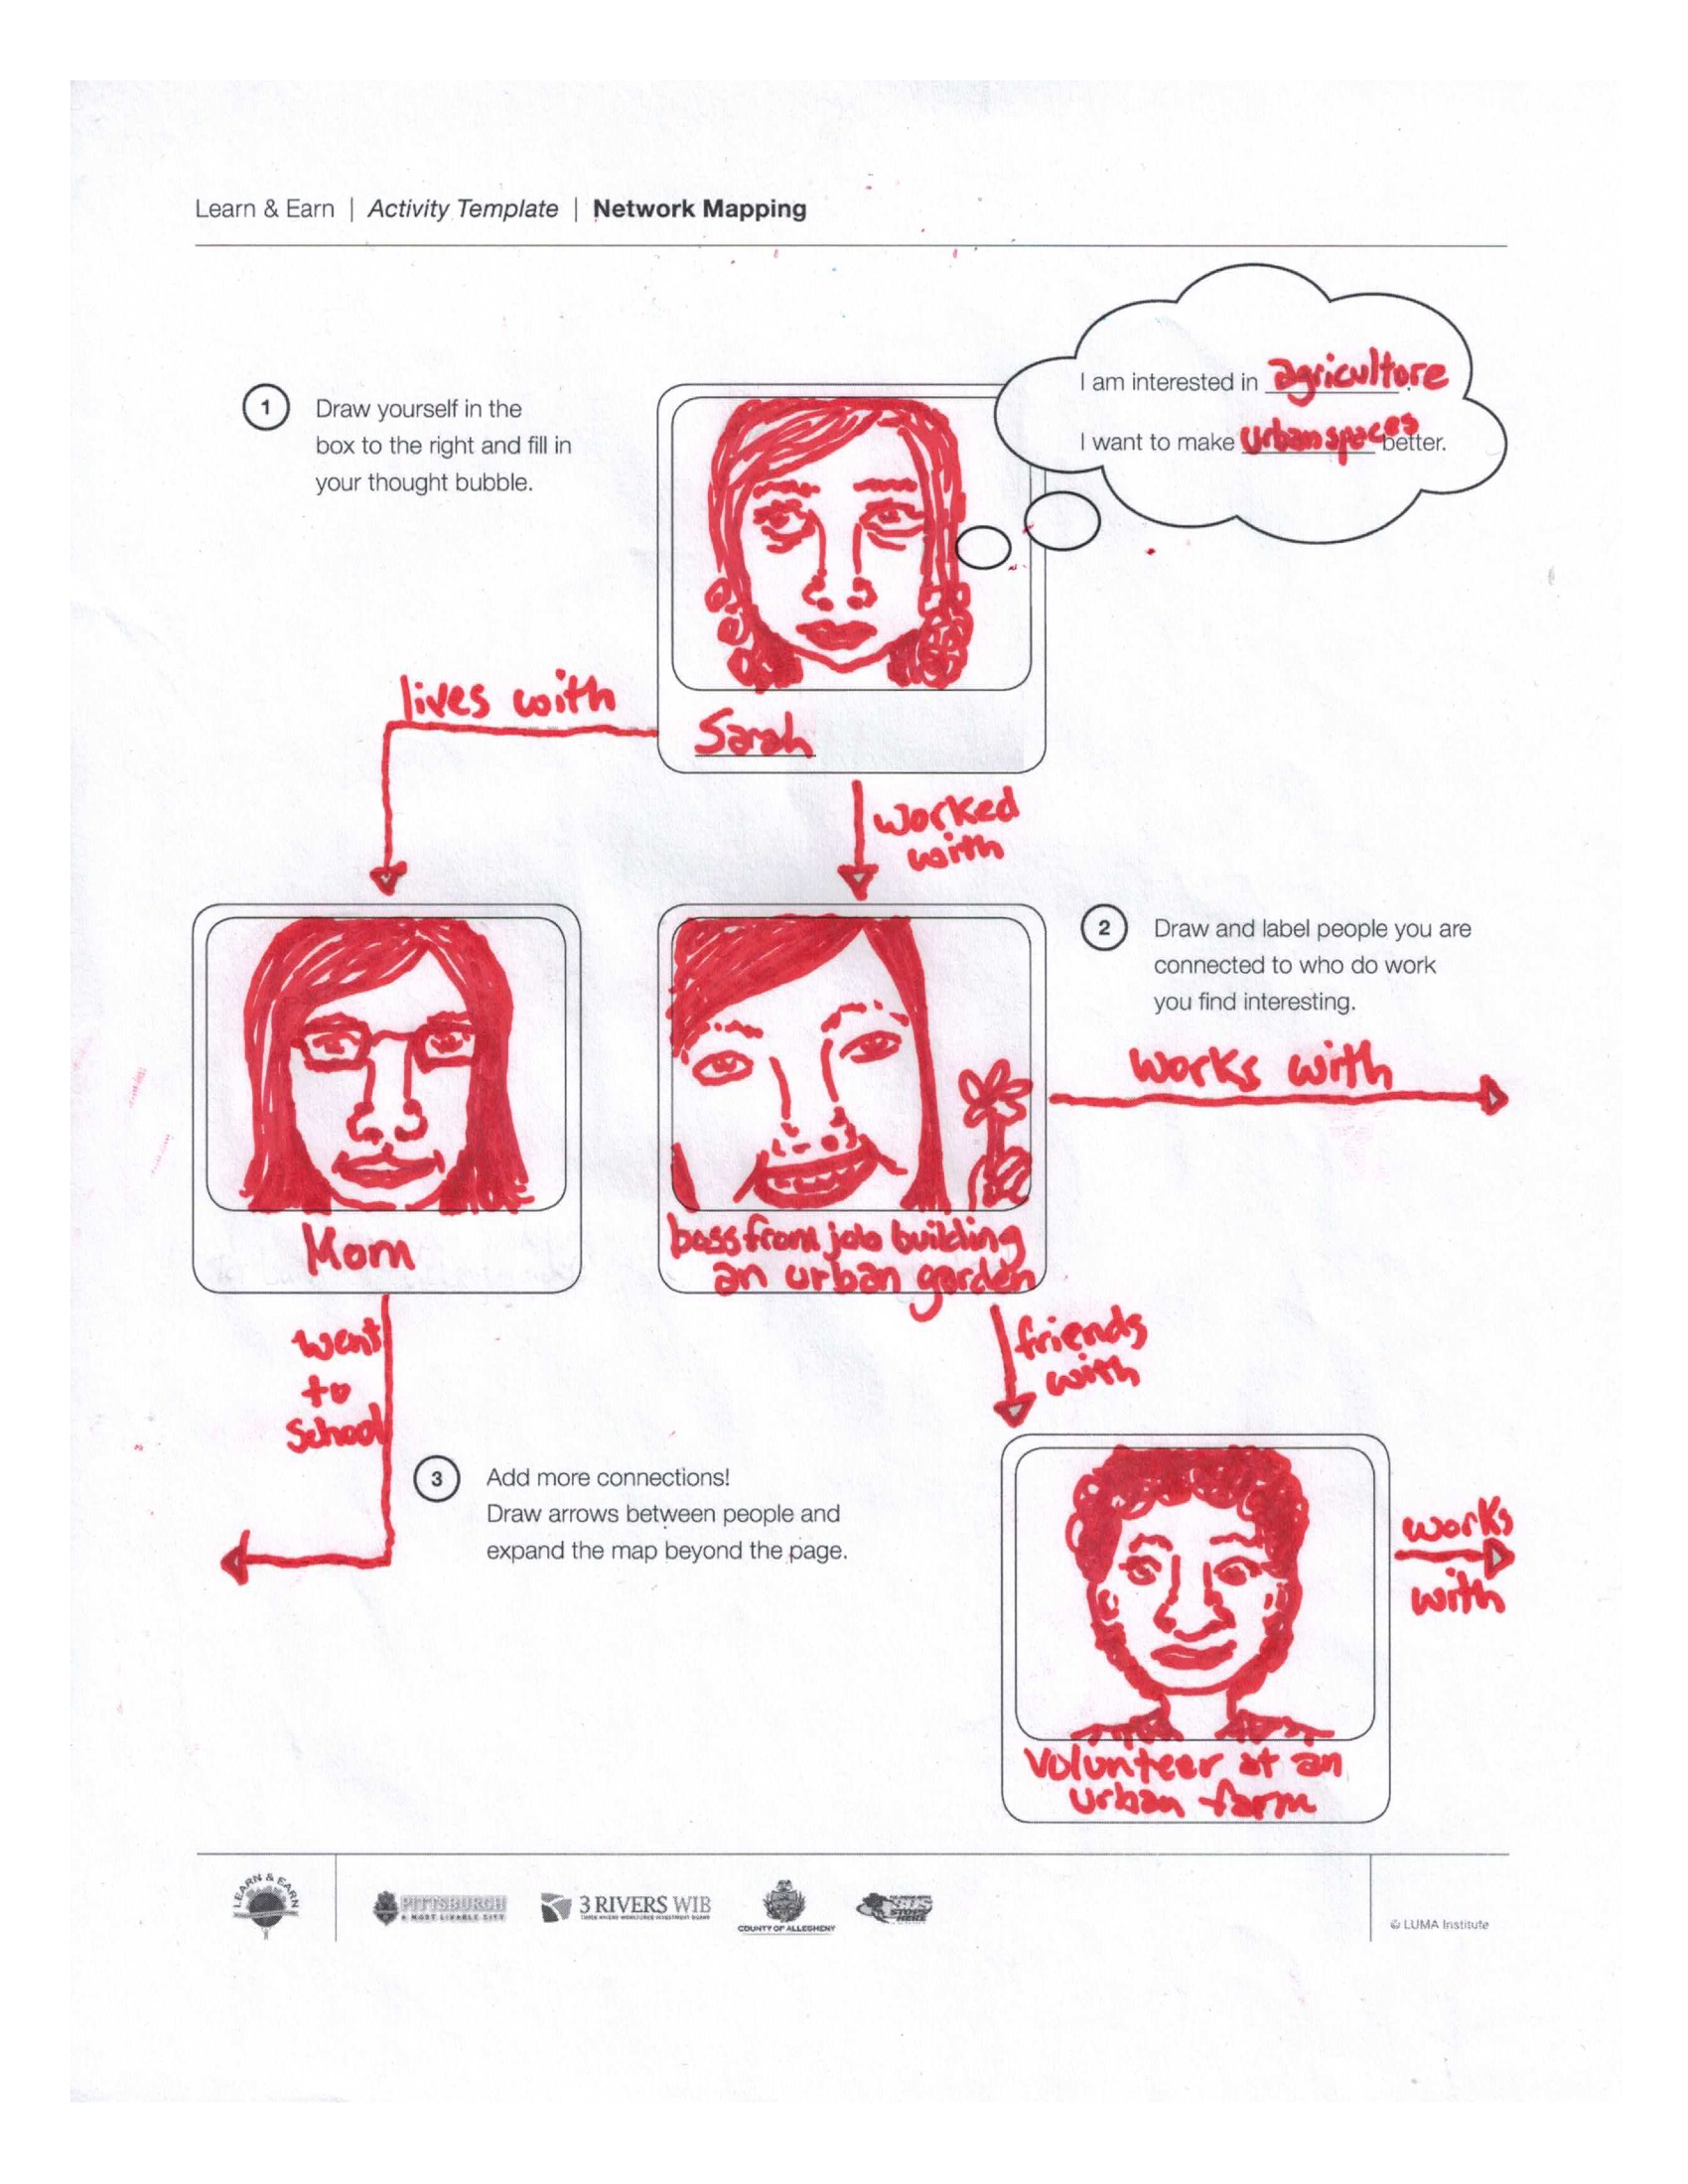 Learn & Earn | Activity Template | Network Mapping
1
Draw yourself in the
box to the right and fill in
your thought bubble.
I am interested in agriculture.
I want to make urban spaces better.
Sarah
lives with
worked
with
Mom
boss from job building
an urban garden
2
Draw and label people you are
connected to who do work
you find interesting.
works with
went
to
school
friends
with
3
Add more connections!
Draw arrows between people and
expand the map beyond the page.
Volunteer at an
urban farm
works
with
LEARN & EARN
PITTSBURGH
A MOST LIVABLE CITY
3 RIVERS WIB
THREE RIVERS WORKFORCE INVESTMENT BOARD
COUNTY OF ALLEGHENY
STOPS
HERE
© LUMA Institute